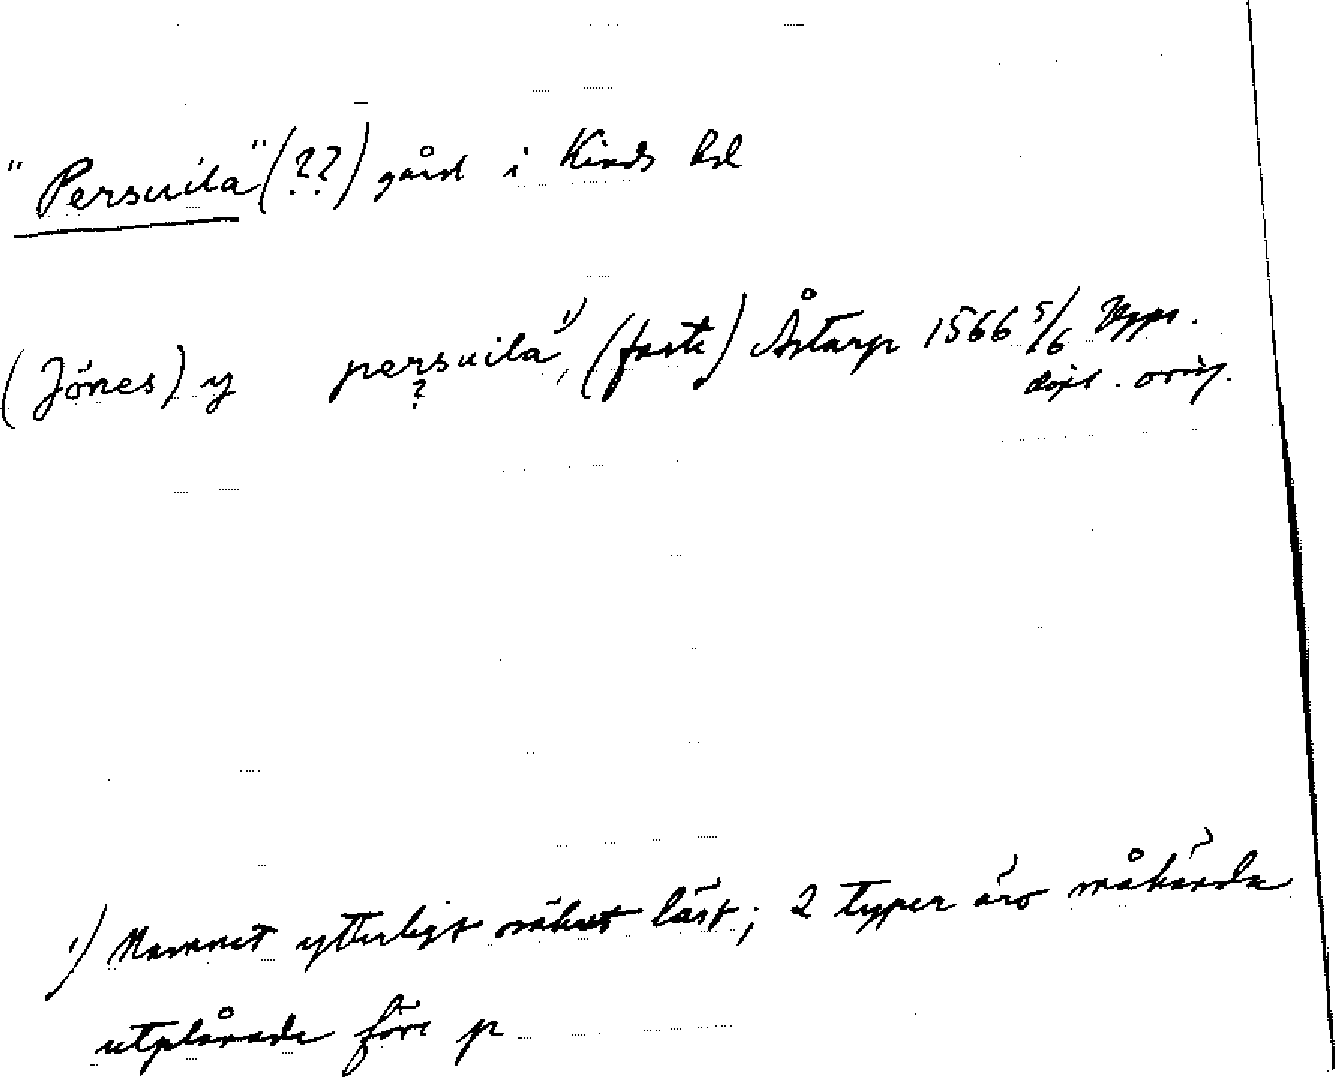 "Persuila" (??) gård i Kinds hd
(Jönes) y persuila¹⁾, (faste) Åstarp 1566 5/6
?
dipl. orig.
¹⁾ Namnet ytterligt osäkert läst; 2 typer äro måhända
utplånade före p